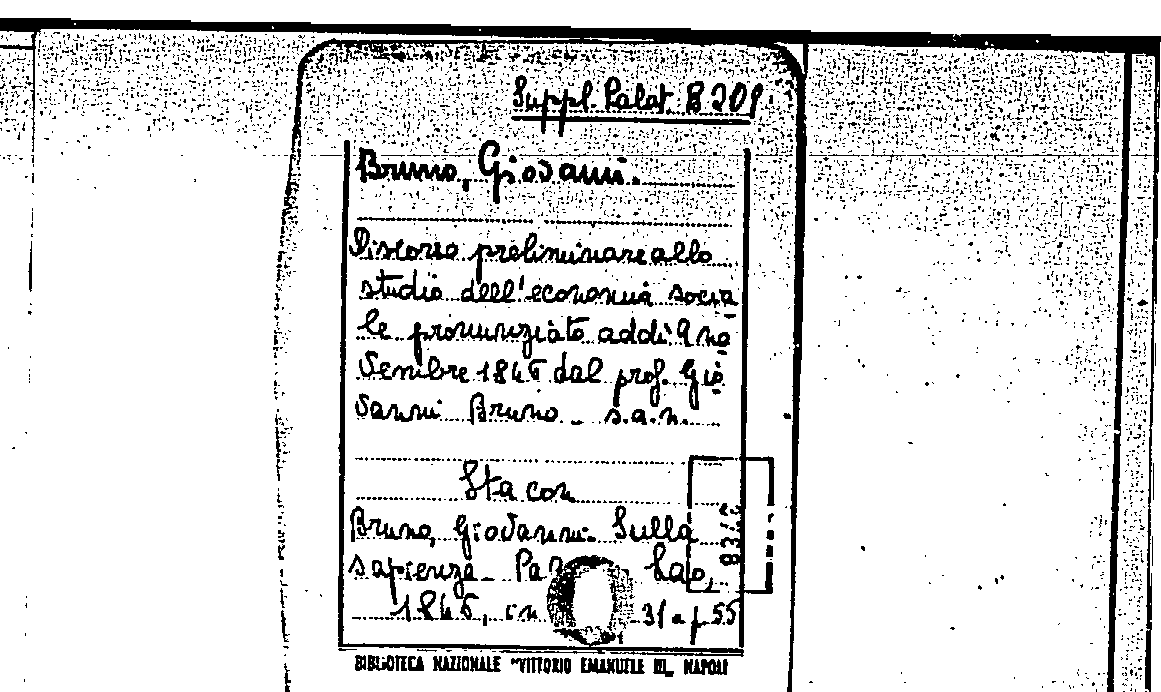 Suppl. Palat. B 209.
Bruno, Giovanni.
Discorso preliminare allo
studio dell'economia socia
le pronunziato addì 9 no
vembre 1846 dal prof. Gio
vanni Bruno - s.a.n.
Sta con
Bruno, Giovanni. Sulla
sapienza - Lao,
1846, in 31 a p 55
BIBLIOTECA NAZIONALE "VITTORIO EMANUELE III" NAPOLI